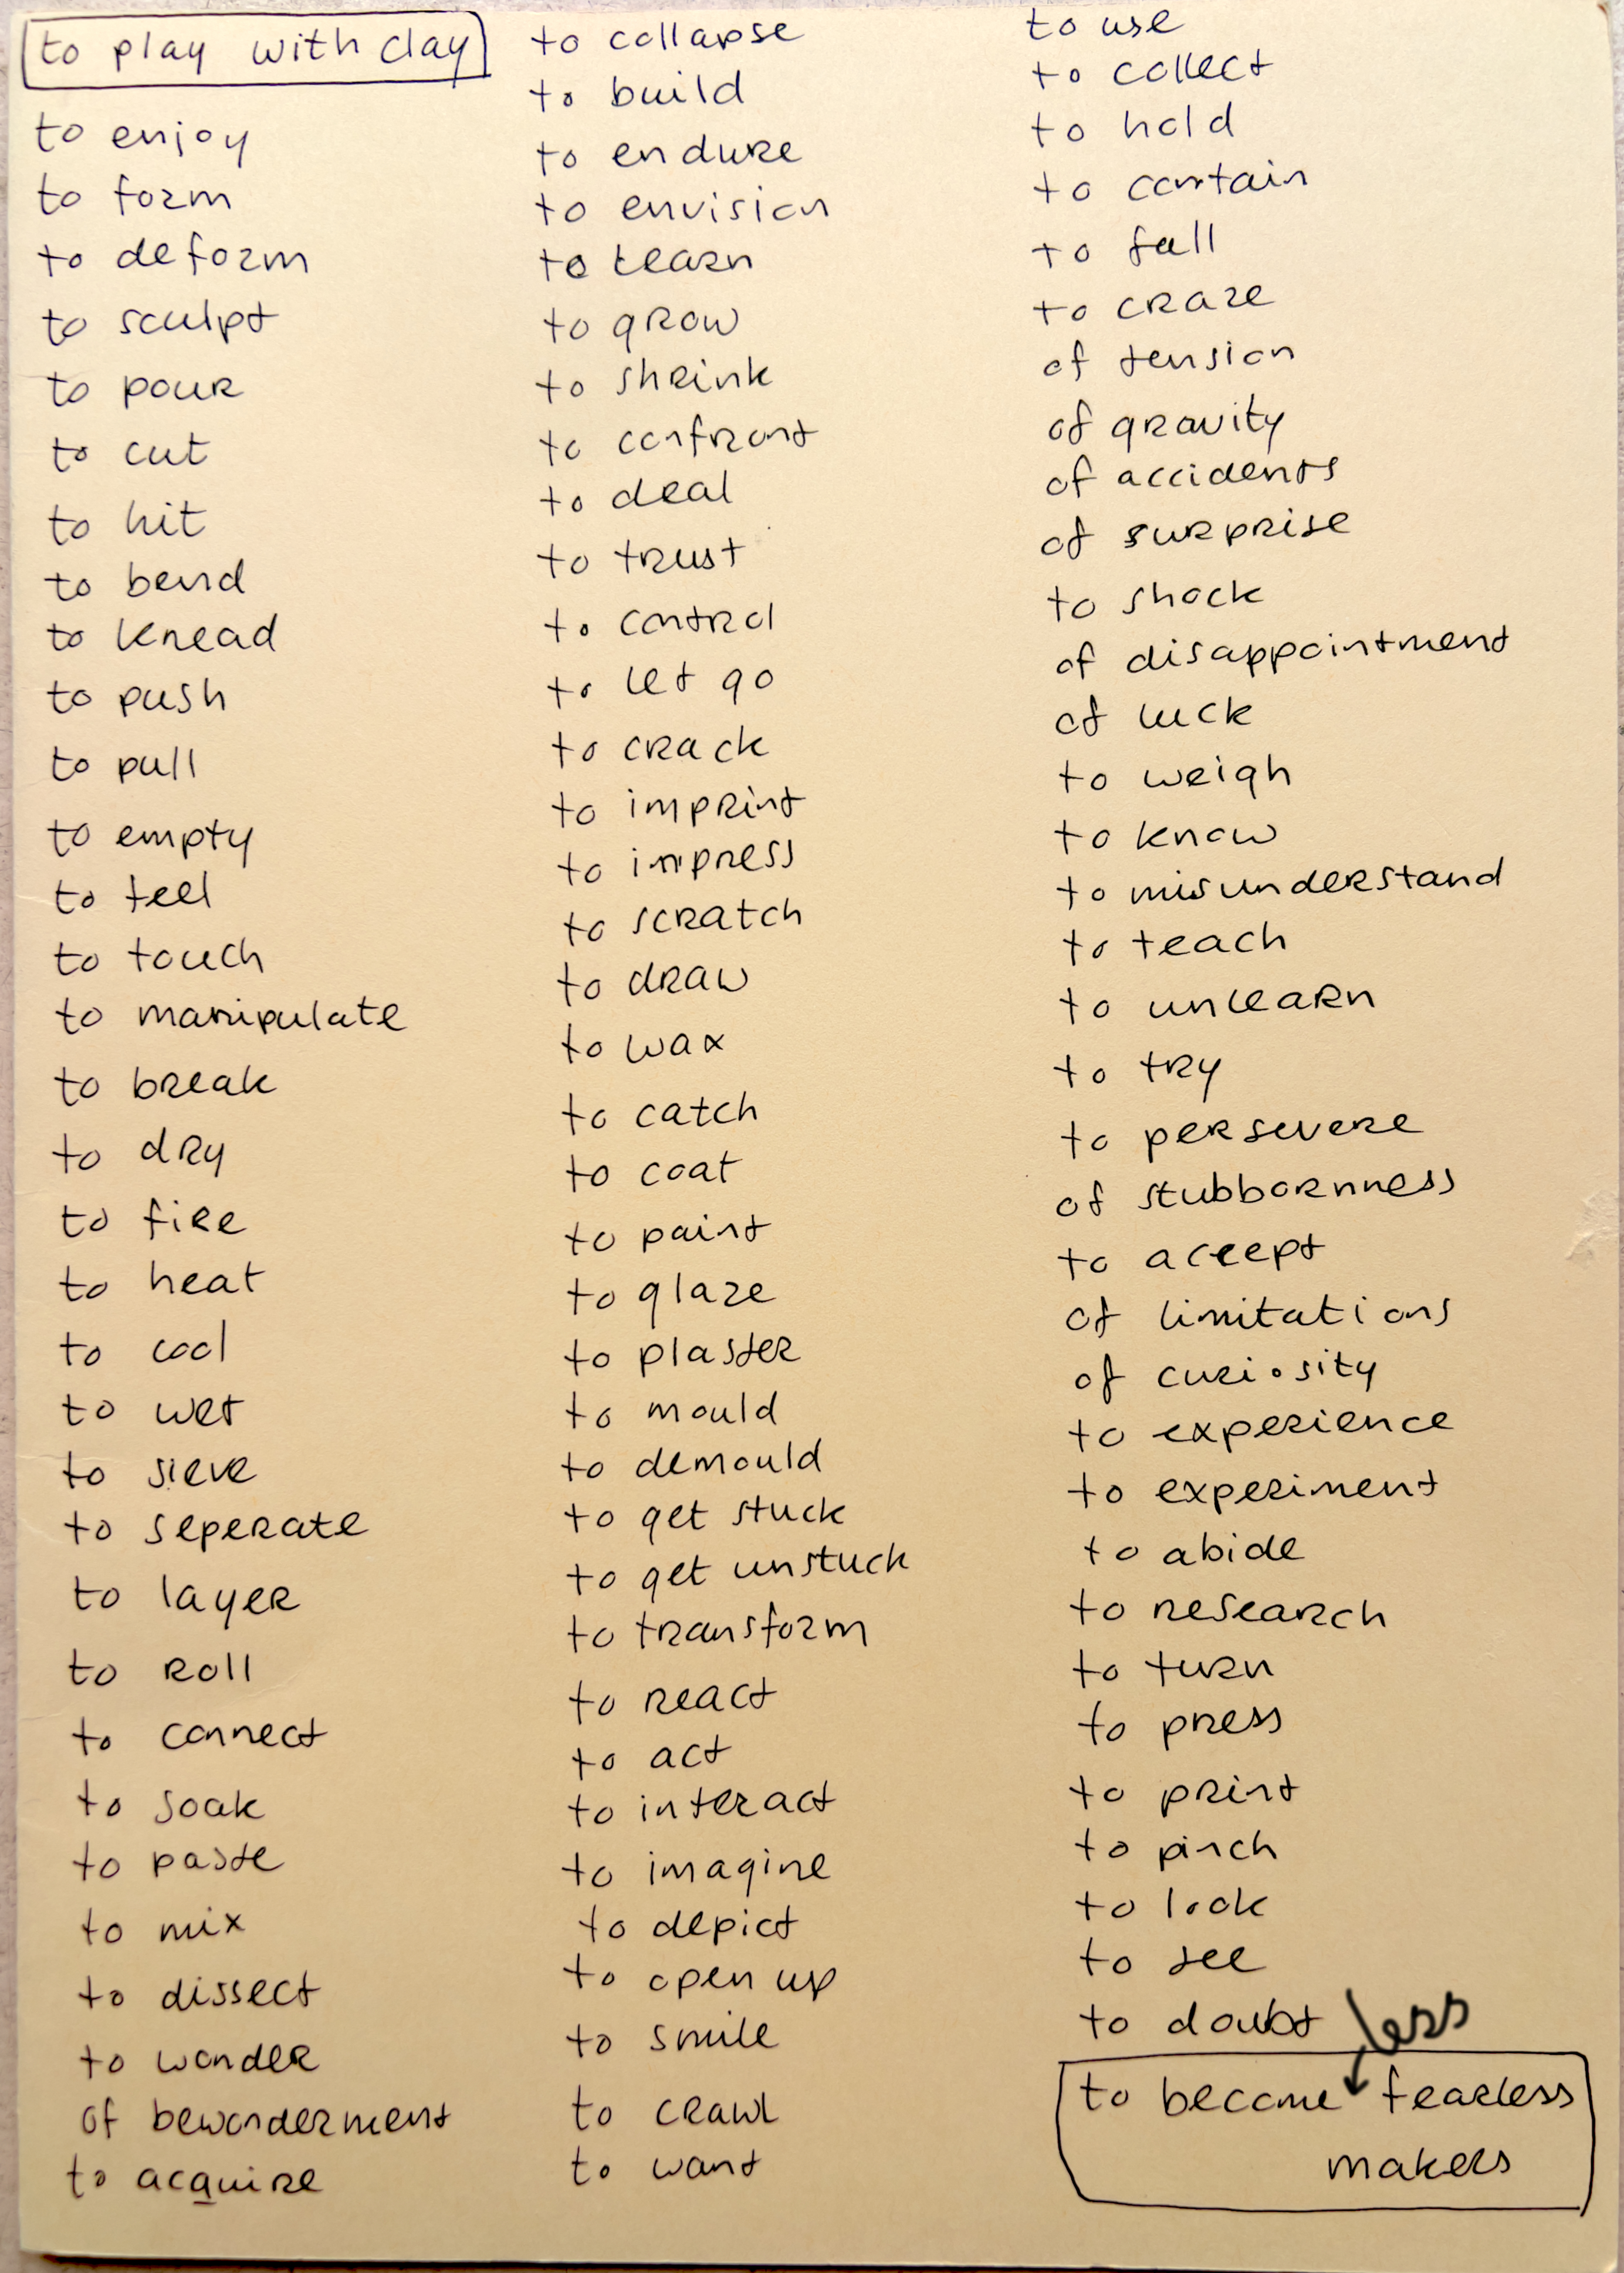 to play with clay
to enjoy
to form
to deform
to sculpt
to pour
to cut
to hit
to bend
to knead
to push
to pull
to empty
to feel
to touch
to manipulate
to break
to dry
to fire
to heat
to cool
to wet
to sieve
to seperate
to layer
to roll
to connect
to soak
to paste
to mix
to dissect
to wonder
of bewonderment
to acquire
to collapse
to build
to endure
to envision
to learn
to grow
to shrink
to confront
to deal
to trust
to control
to let go
to crack
to imprint
to impress
to scratch
to draw
to wax
to catch
to coat
to paint
to glaze
to plaster
to mould
to demould
to get stuck
to get unstuck
to transform
to react
to act
to interact
to imagine
to depict
to open up
to smile
to crawl
to want
to use
to collect
to hold
to contain
to fall
to craze
of tension
of gravity
of accidents
of surprise
to shock
of disappointment
of luck
to weigh
to know
to misunderstand
to teach
to unlearn
to try
to persevere
of stubbornness
to accept
of limitations
of curiosity
to experience
to experiment
to abide
to research
to turn
to press
to print
to pinch
to look
to see
to doubt
less
to become fearless
makers